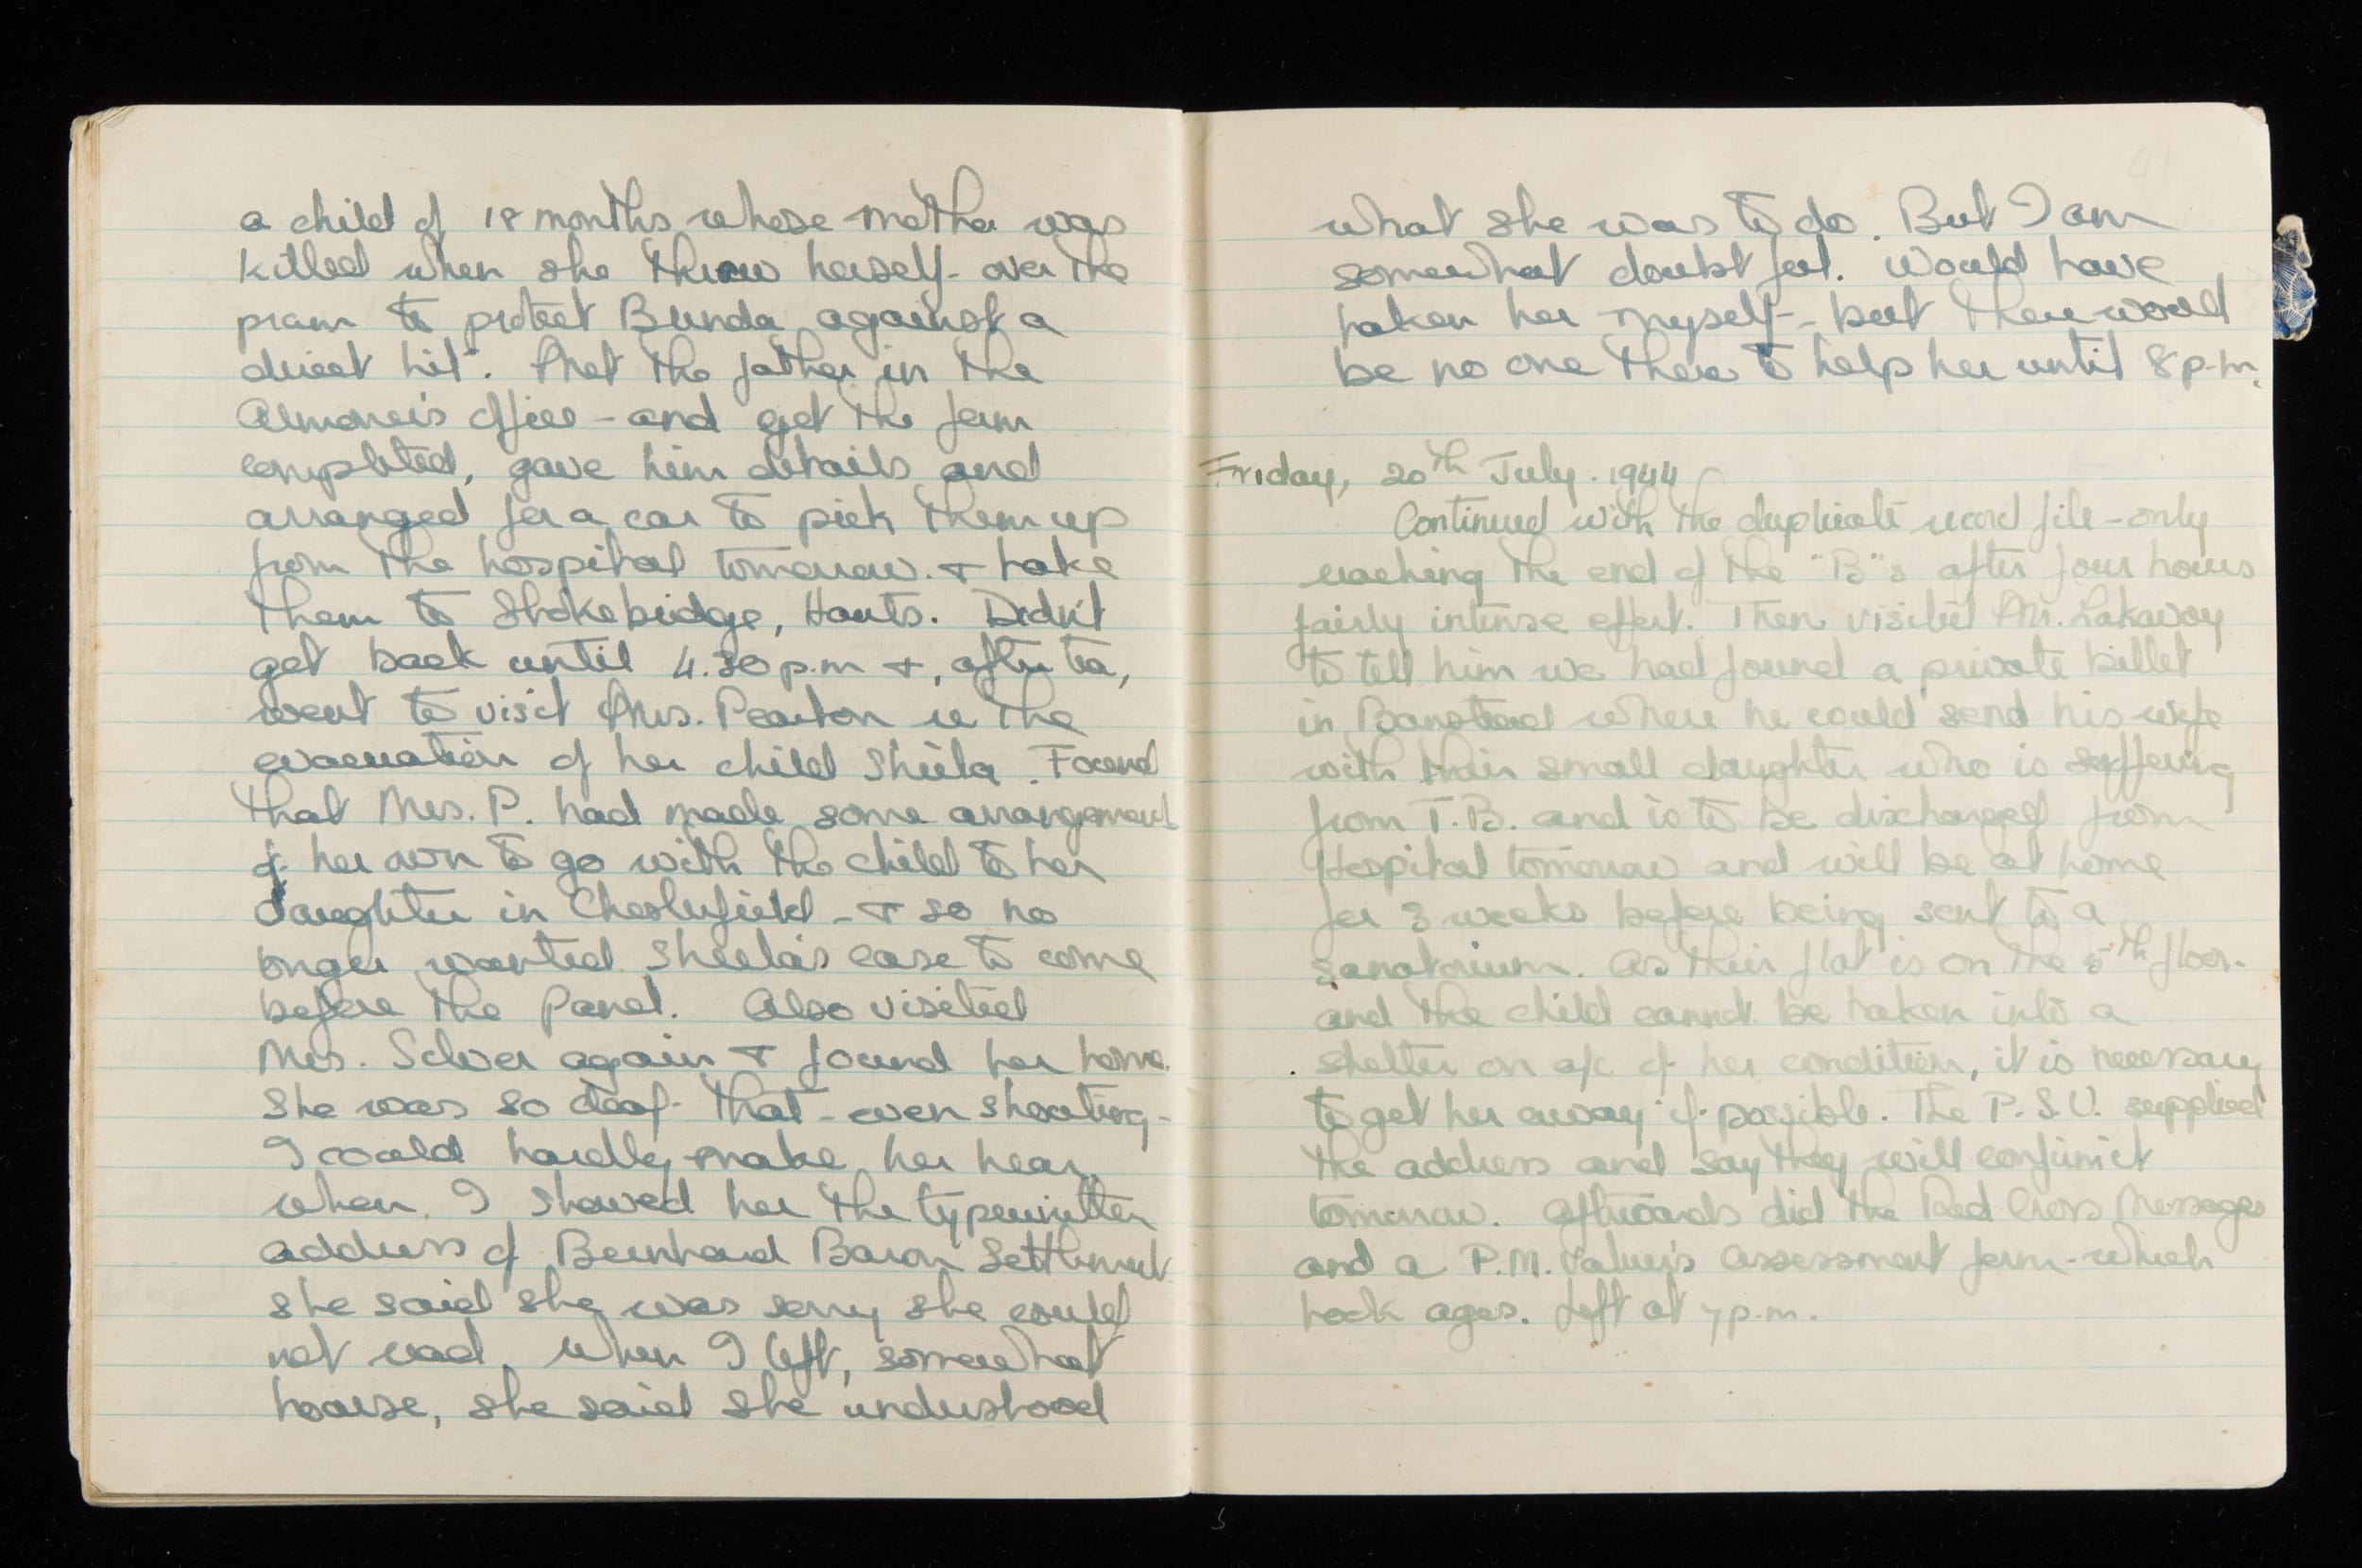 a child of 18 months whose mother was
killed when she threw herself over the
pram to protect Brenda against a
direct hit". Met the father in the
Almoner's office - and get the form
completed, gave him details and
arranged for a car to pick them up
from the hospital tomorrow. + take
them to Stokebridge, Hants. Didn't
get back until 4.30 p.m +, after tea,
went to visit Mrs. Pearton re the
evacuation of her child Sheila. Found
that Mrs. P. had made some arrangement
of her own to go with the child to her
daughter in Chesterfield - + so no
longer wanted Sheila's case to come
before the Panel. Also visited
Mrs. Silver again + found her home.
She was so deaf that - even shouting -
I could hardly make her hear.
When I showed her the typewritten
address of Bernhard Baron Settlement
she said she was sorry she could
not read. When I left, somewhat
hoarse, she said she understood
41
what she was to do. But I am
somewhat doubtful. Would have
taken her myself - but there would
be no one there to help her until 8 p.m.
Friday, 20th July. 1944
Continued with the duplicate record file - only
reaching the end of the "B"s after four hours
fairly intense effort. Then visited Mr. Lakavoy
to tell him we had found a private billet
in Banstead where he could send his wife
with their small daughter who is suffering
from T.B. and is to be discharged from
Hospital tomorrow and will be at home
for 3 weeks before being sent to a
sanatorium. As their flat is on the 5th floor.
and the child cannot be taken into a
shelter on a/c of her condition, it is necessary
to get her away if possible. The P.S.U. supplied
the address and say they will confirm it
tomorrow. Afterwards did the Red Cross Messages
and a P.M. Valuer's Assessment form - which
took ages. Left at 7 p.m.